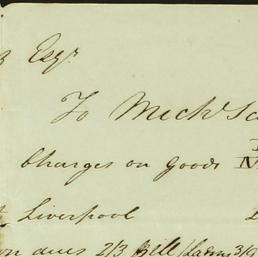 Esqr
To Mechl
Charges on Goods
Liverpool
dues 2/3 Bill/Lading 3/9